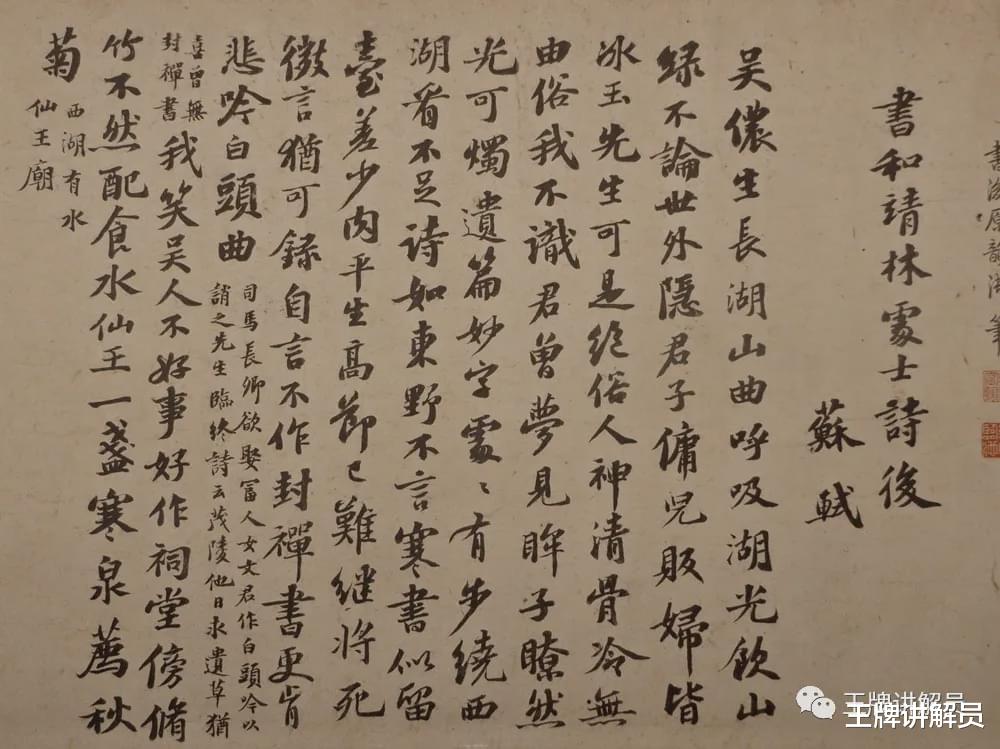 書和靖林處士詩後
蘇軾
吳儂生長湖山曲呼吸湖光飲山
綠不論世外隱君子傭兒販婦皆
冰玉先生可是絕俗人神清骨冷無
由俗我不識君曾夢見眸子瞭然
光可燭遺篇妙字處〻有步繞西
湖看不足詩如東野不言寒書似留
臺差少肉平生高節已難繼將死
微言猶可錄自言不作封禪書更肯
悲吟白頭曲
司馬長卿欲娶富人女文君作白頭吟以
誚之先生臨終詩云茂陵他日求遺草猶
喜曾無
封禪書
我笑吳人不好事好作祠堂傍脩
竹不然配食水仙王一盞寒泉薦秋
菊
西湖有水
仙王廟
王牌讲解员
王牌讲解员